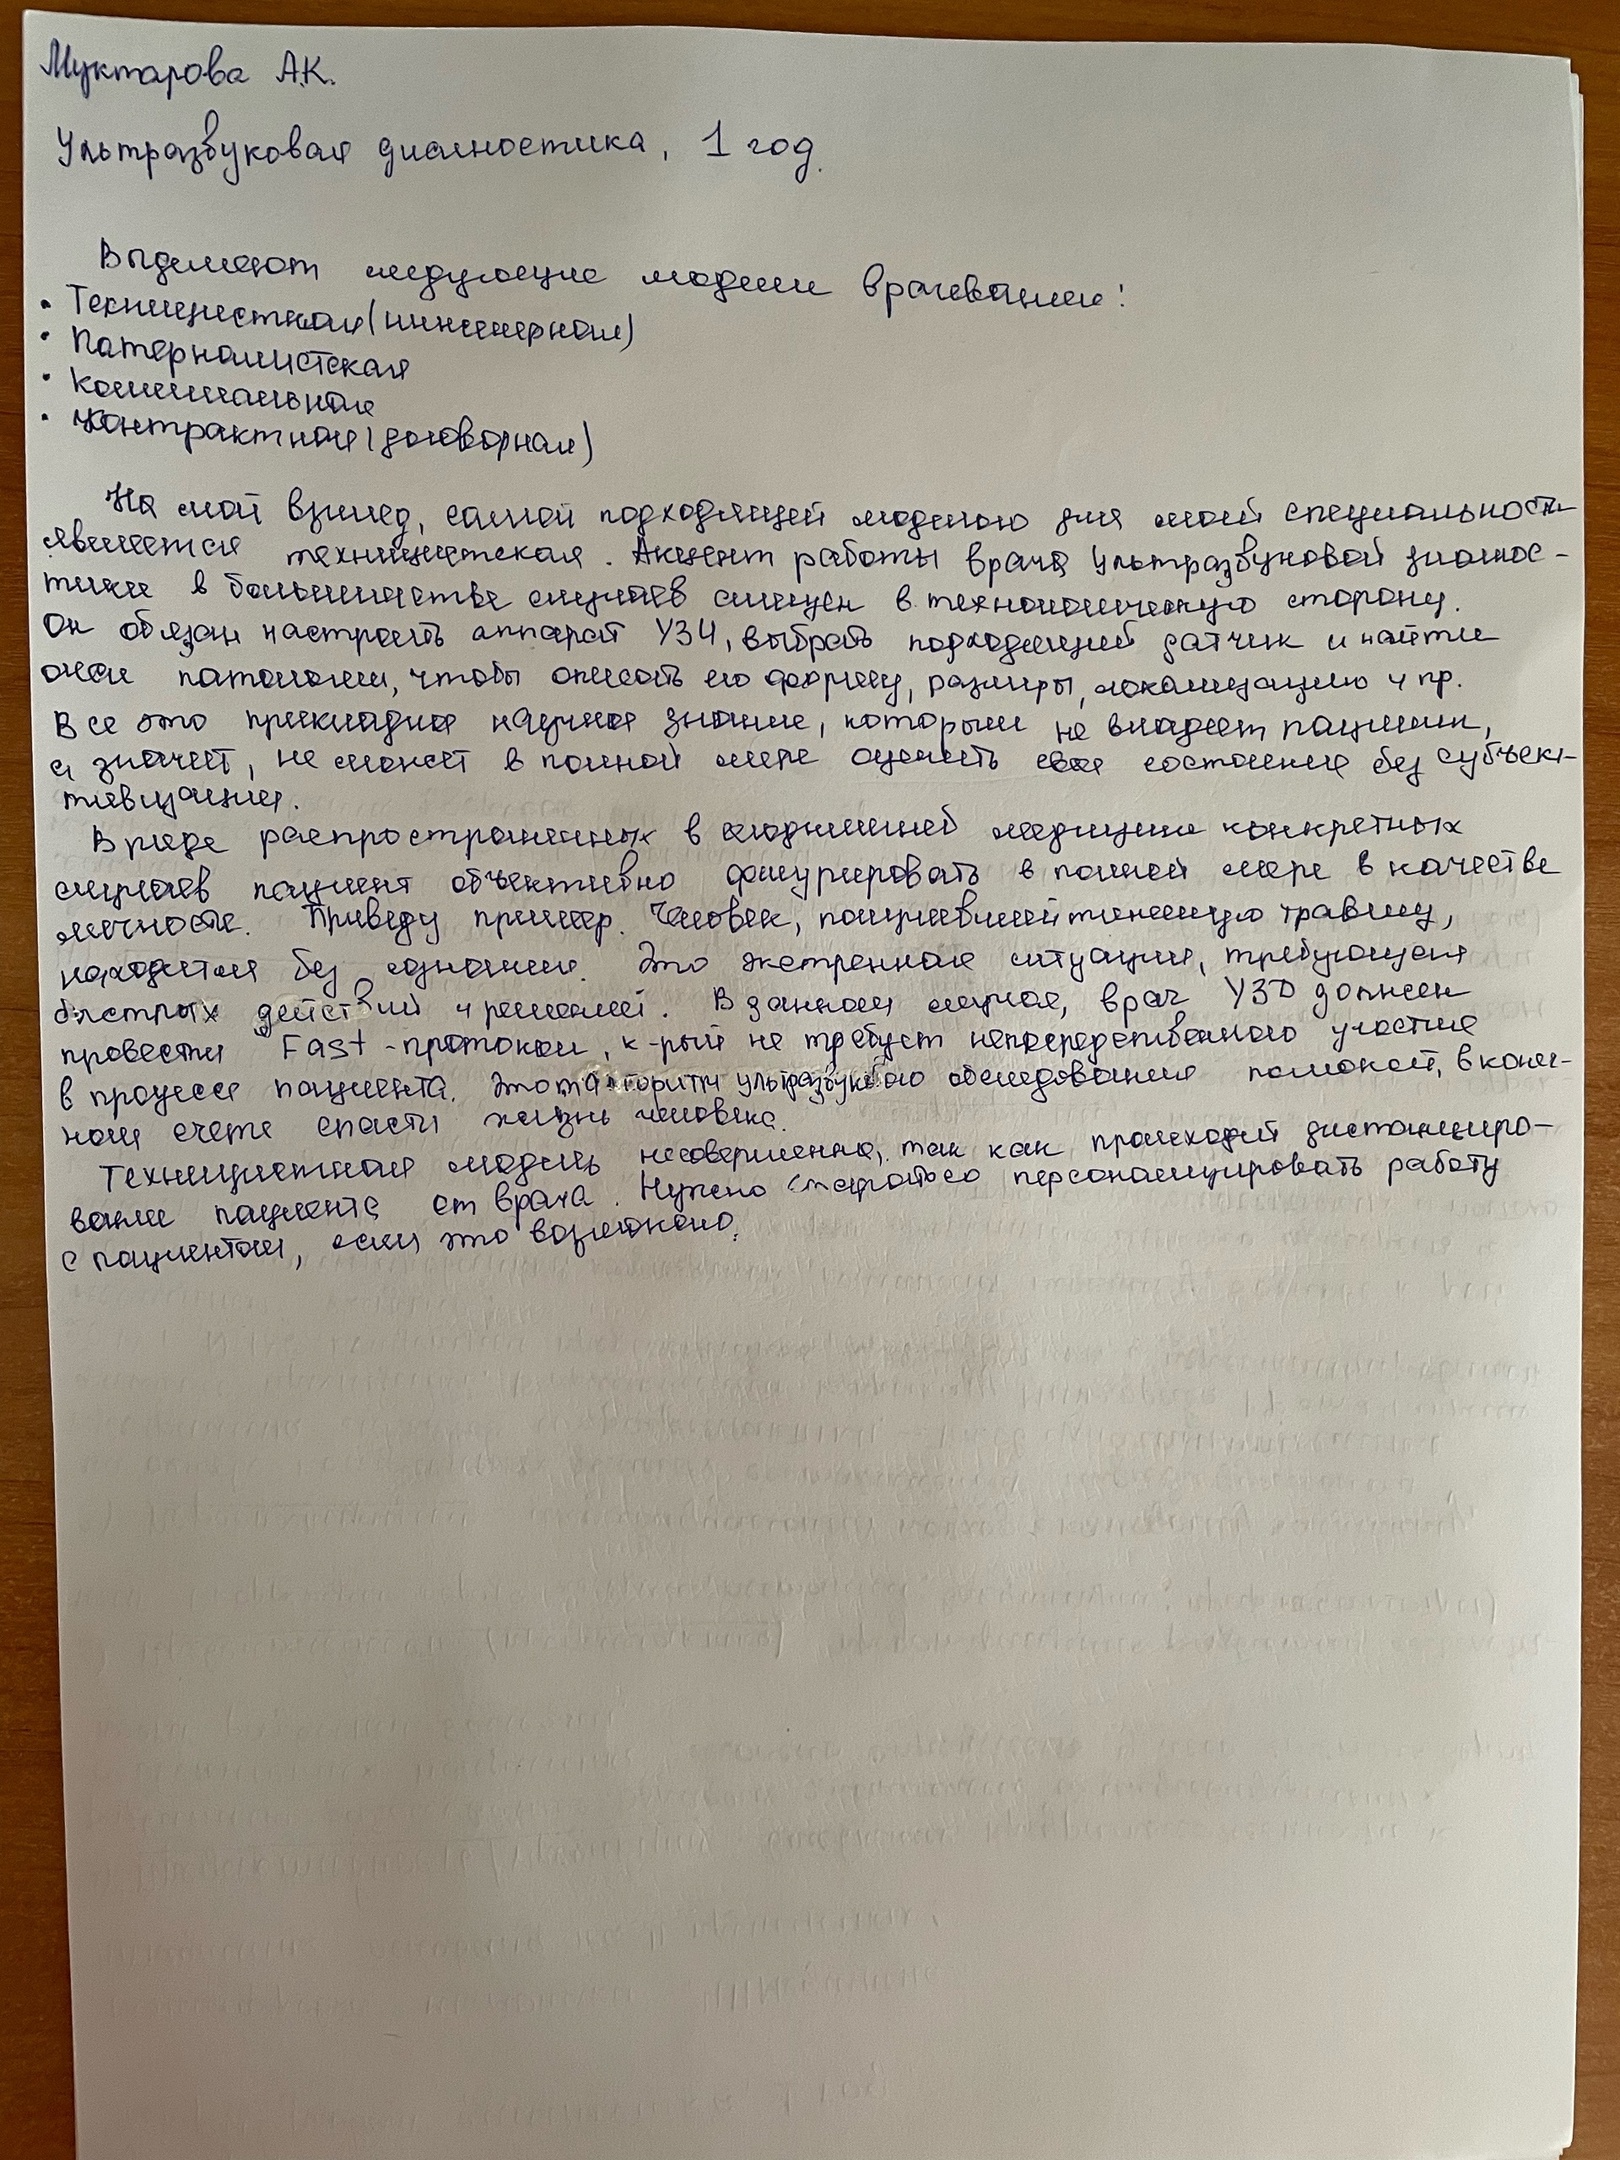 Муктарова А.К.
Ультразвуковая диагностика, 1 год.
Выделяют следующие модели врачевания:
• Техницистская (инженерная)
• Патерналистская
• Коллегиальная
• Контрактная (договорная)
На мой взгляд, самой подходящей моделью для моей специальности
является техницистская. Акцент работы врача ультразвуковой диагнос-
тики в большинстве случаев смещен в технологическую сторону.
Он обязан настроить аппарат УЗИ, выбрать подходящий датчик и найти
очаг патологии, чтобы описать его форму, размеры, локализацию и пр.
Все это прикладные научные знания, которыми не владеет пациент,
а значит, не может в полной мере оценить свое состояние без субъек-
тивизации.
В ряде распространенных в сегодняшней медицине конкретных
случаев пациент объективно фигурировать в полной мере в качестве
личности. Приведу пример. Человек, получивший тяжелую травму,
находится без сознания. Это экстренная ситуация, требующая
быстрых действий и решений. В данном случае, врач УЗД должен
провести Fast-протокол, к-рый не требует непосредственного участия
в процессе пациента. Этот алгоритм ультразвукового обследования поможет, в конеч-
ном счете спасти жизнь человека.
Техницистская модель несовершенна, так как происходит дистанциро-
вание пациента от врача. Нужно стараться персонализировать работу
с пациентом, если это возможно.